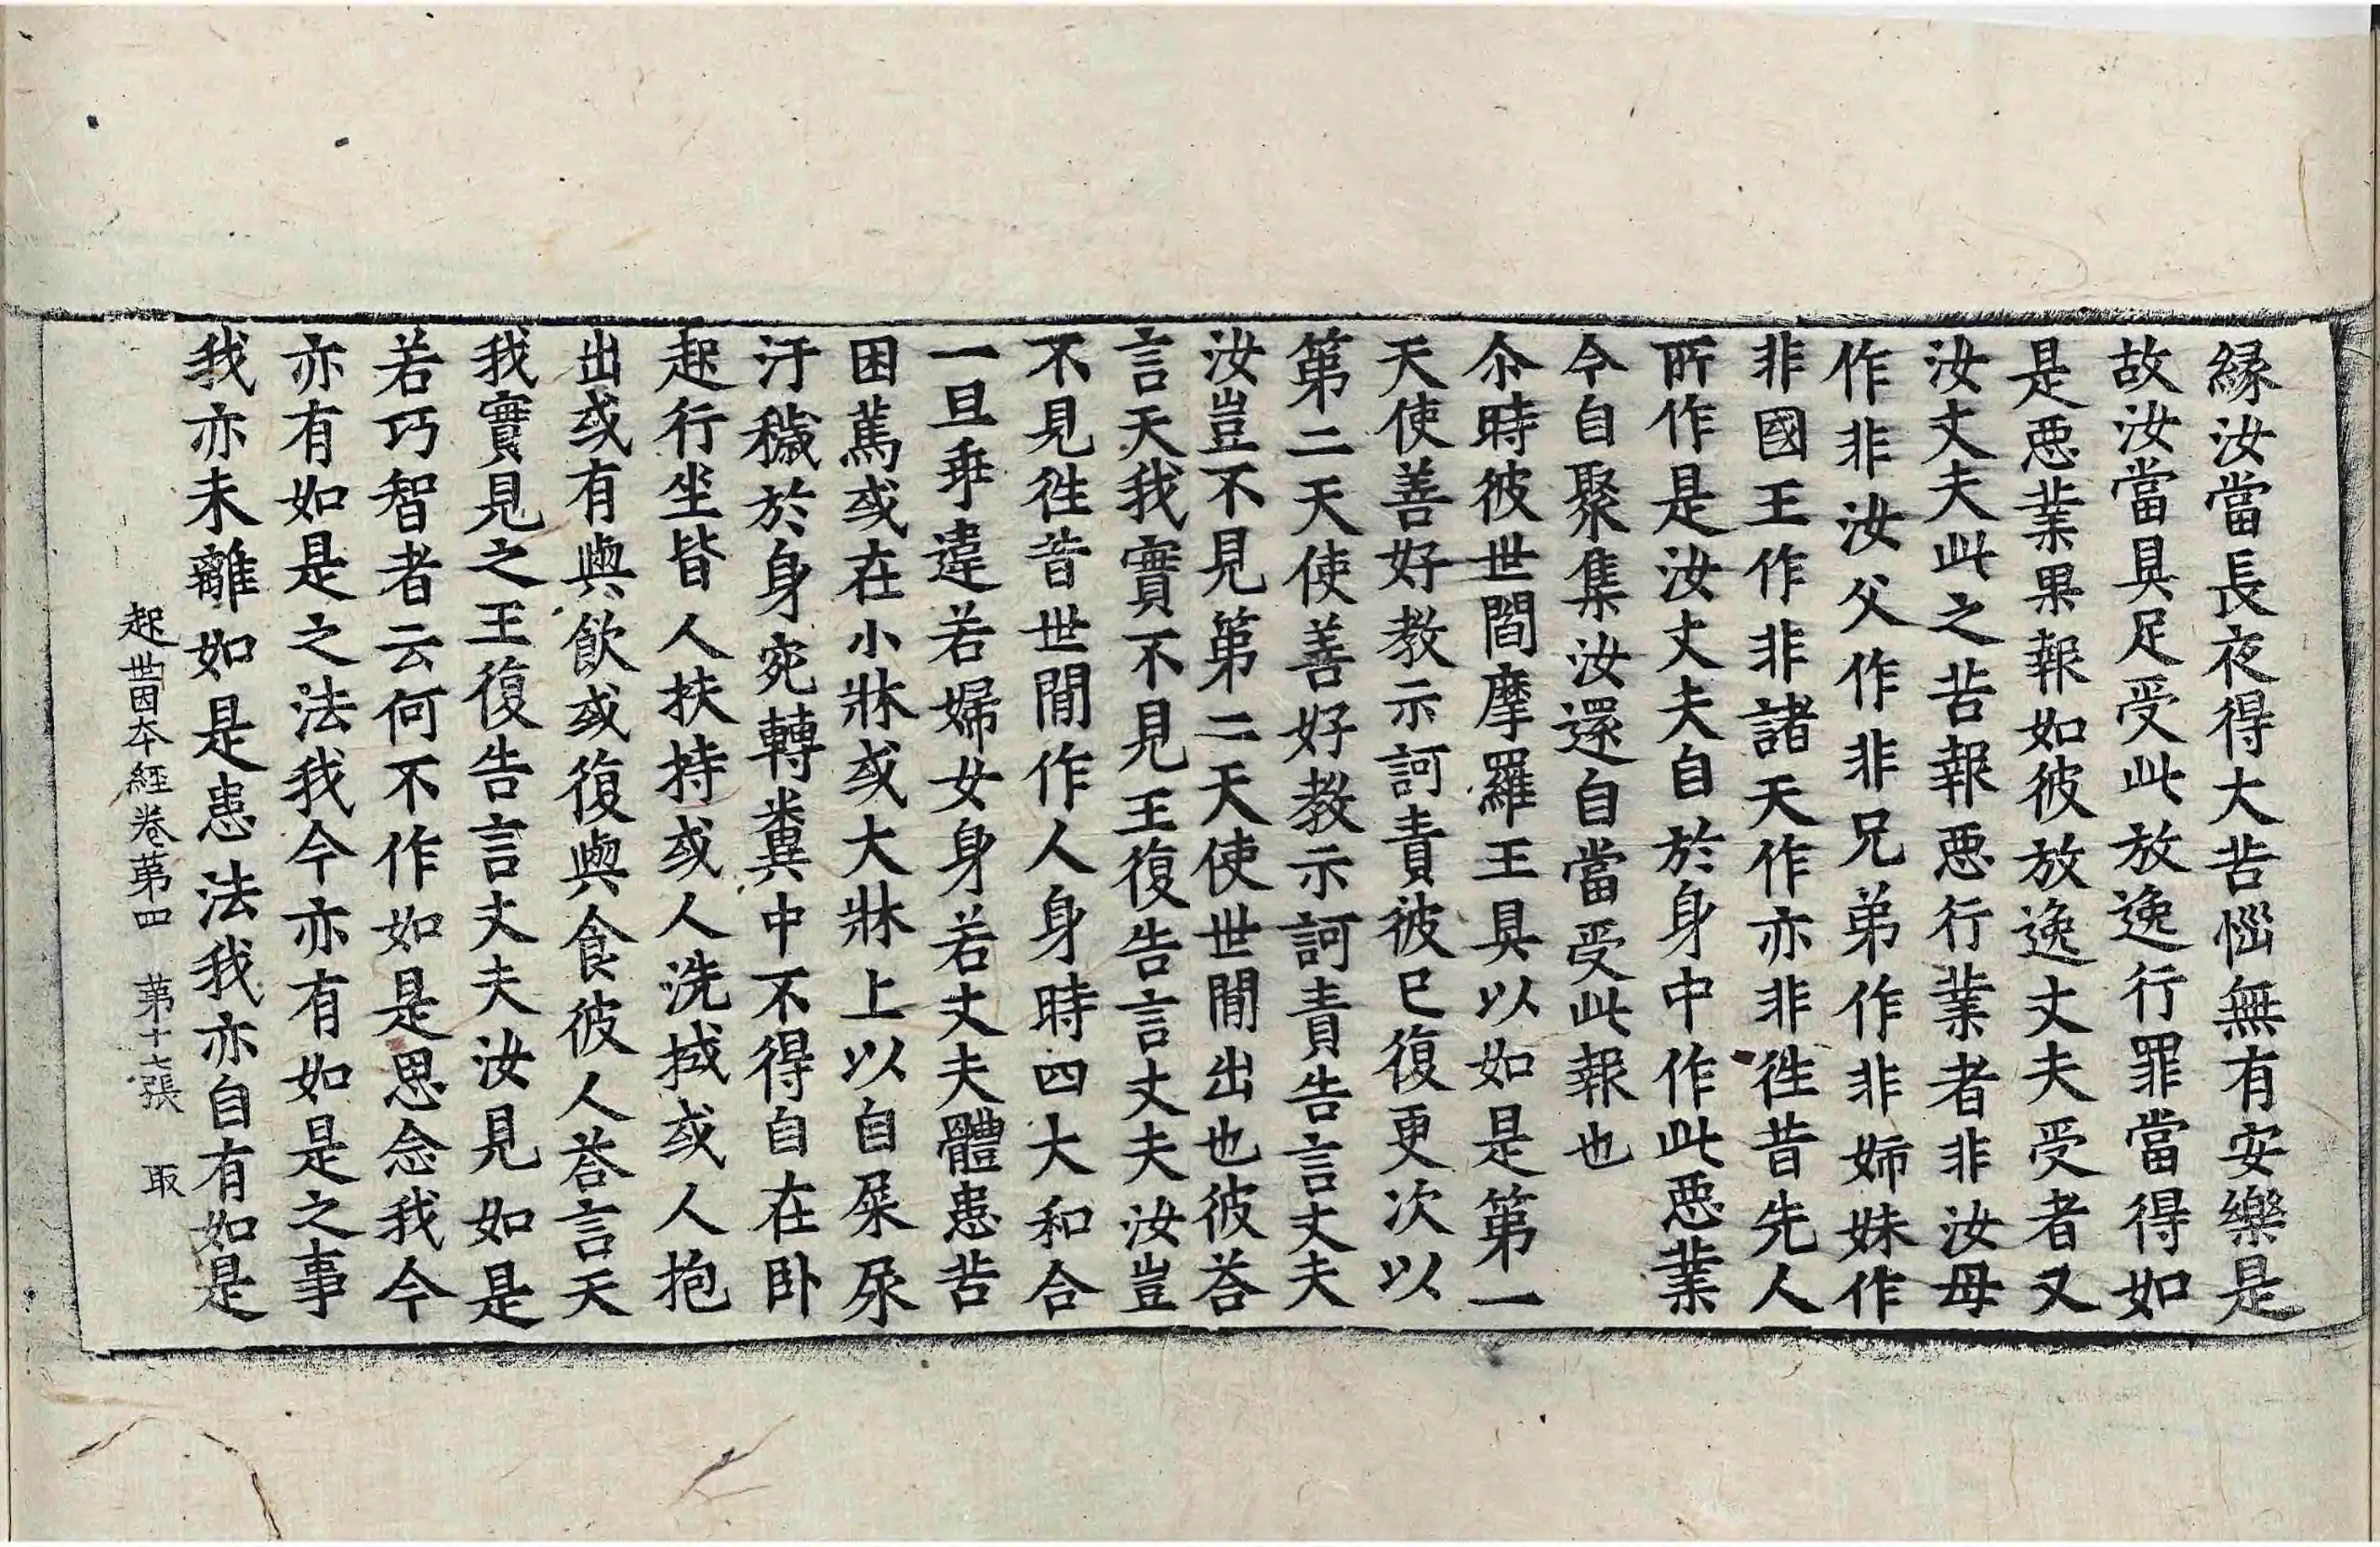 緣汝當長夜得大苦惱無有安樂是
故汝當具足受此放逸行罪當得如
是惡業果報如彼放逸丈夫受者又
汝丈夫此之苦報惡行業者非汝母
作非汝父作非兄弟作非姉妹作
非國王作非諸天作亦非徃昔先人
所作是汝丈夫自於身中作此惡業
今自聚集汝還自當受此報也
尒時彼世閻摩羅王具以如是第一
天使善好教示訶責彼已復更次以
第二天使善好教示訶責告言丈夫
汝豈不見第二天使世間出也彼荅
言天我實不見王復告言丈夫汝豈
不見徃昔世間作人身時四大和合
一旦乖違若婦女身若丈夫體患苦
困篤或在小牀或大牀上以自屎尿
汙穢於身宛轉糞中不得自在卧
起行坐皆人扶持或人洗拭或人抱
出或有與飲或復與食彼人荅言天
我實見之王復告言丈夫汝見如是
若巧智者云何不作如是思念我今
亦有如是之法我今亦有如是之事
我亦未離如是患法我亦自有如是
起世因本經卷第四　第十七張　取